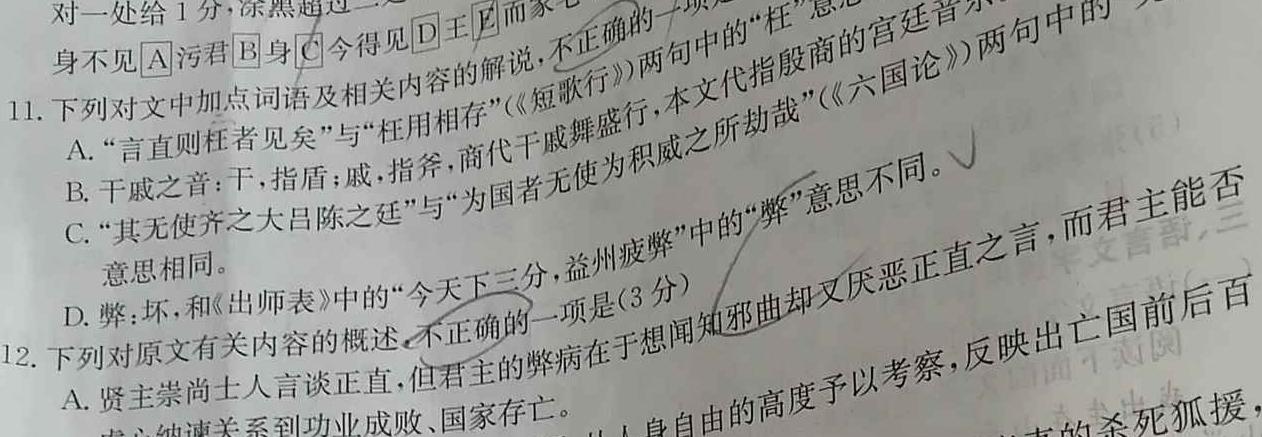 对一处给1分,涂黑超过
身不见A污君B身C今得见D王E而家
11. 下列对文中加点词语及相关内容的解说,不正确的一项
A. “言直则枉者见矣”与“枉用相存”(《短歌行》)两句中的“枉”意
B. 干戚之音:干,指盾;戚,指斧,商代干戚舞盛行,本文代指殷商的宫廷音乐
C. “其无使齐之大吕陈之廷”与“为国者无使为积威之所劫哉”(《六国论》)两句中的
意思相同。
D. 弊:坏,和《出师表》中的“今天下三分,益州疲弊”中的“弊”意思不同。
12. 下列对原文有关内容的概述,不正确的一项是(3分)
A. 贤主崇尚士人言谈正直,但君主的弊病在于想闻知邪曲却又厌恶正直之言,而君主能否
虚心纳谏关系到功业成败、国家存亡。
人身自由的高度予以考察,反映出亡国前后百
的杀死狐援,